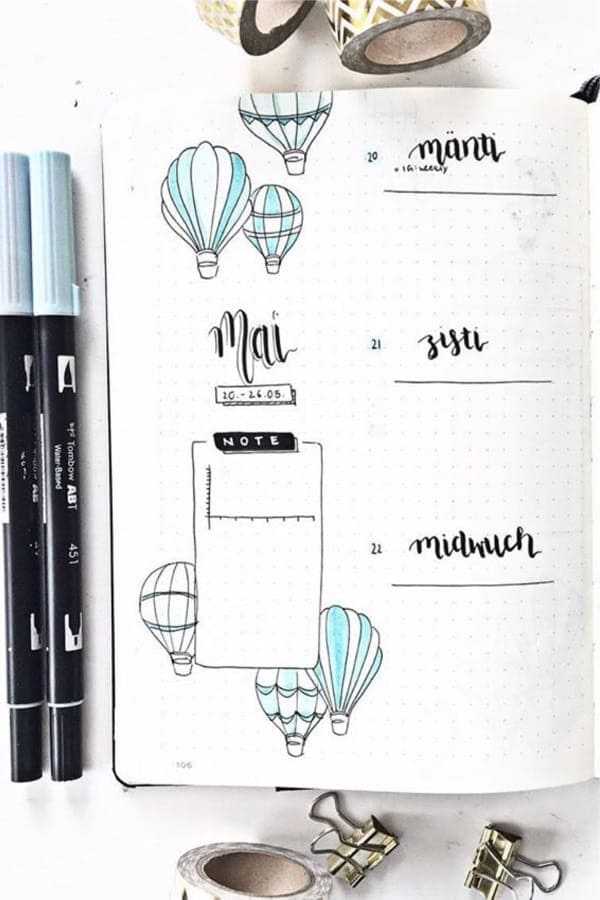 20 mänti
21 zisti
Mai
20.-26.05.
NOTE
22 midwuch
Tombow ABT
Water-Based
451
106